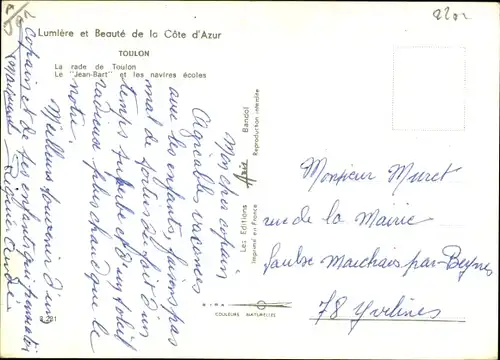 2202
Lumière et Beauté de la Côte d'Azur
TOULON
La rade de Toulon
Le "Jean-Bart" et les navires écoles
Mon cher copain
Agréables vacances
avec les enfants, faisons pas
mal de sorties du fait d'un
temps superbe et d'un soleil
radieux plus chaud que le
notre.
Meilleurs souvenir d'un
copain et de ses enfants
Les Editions Bandol
Imprimé en France
Reproduction interdite
COULEURS NATURELLES
Monsieur Muret
rue de la Mairie
Saulx Marchais par Beynes
78 Yvelines
221